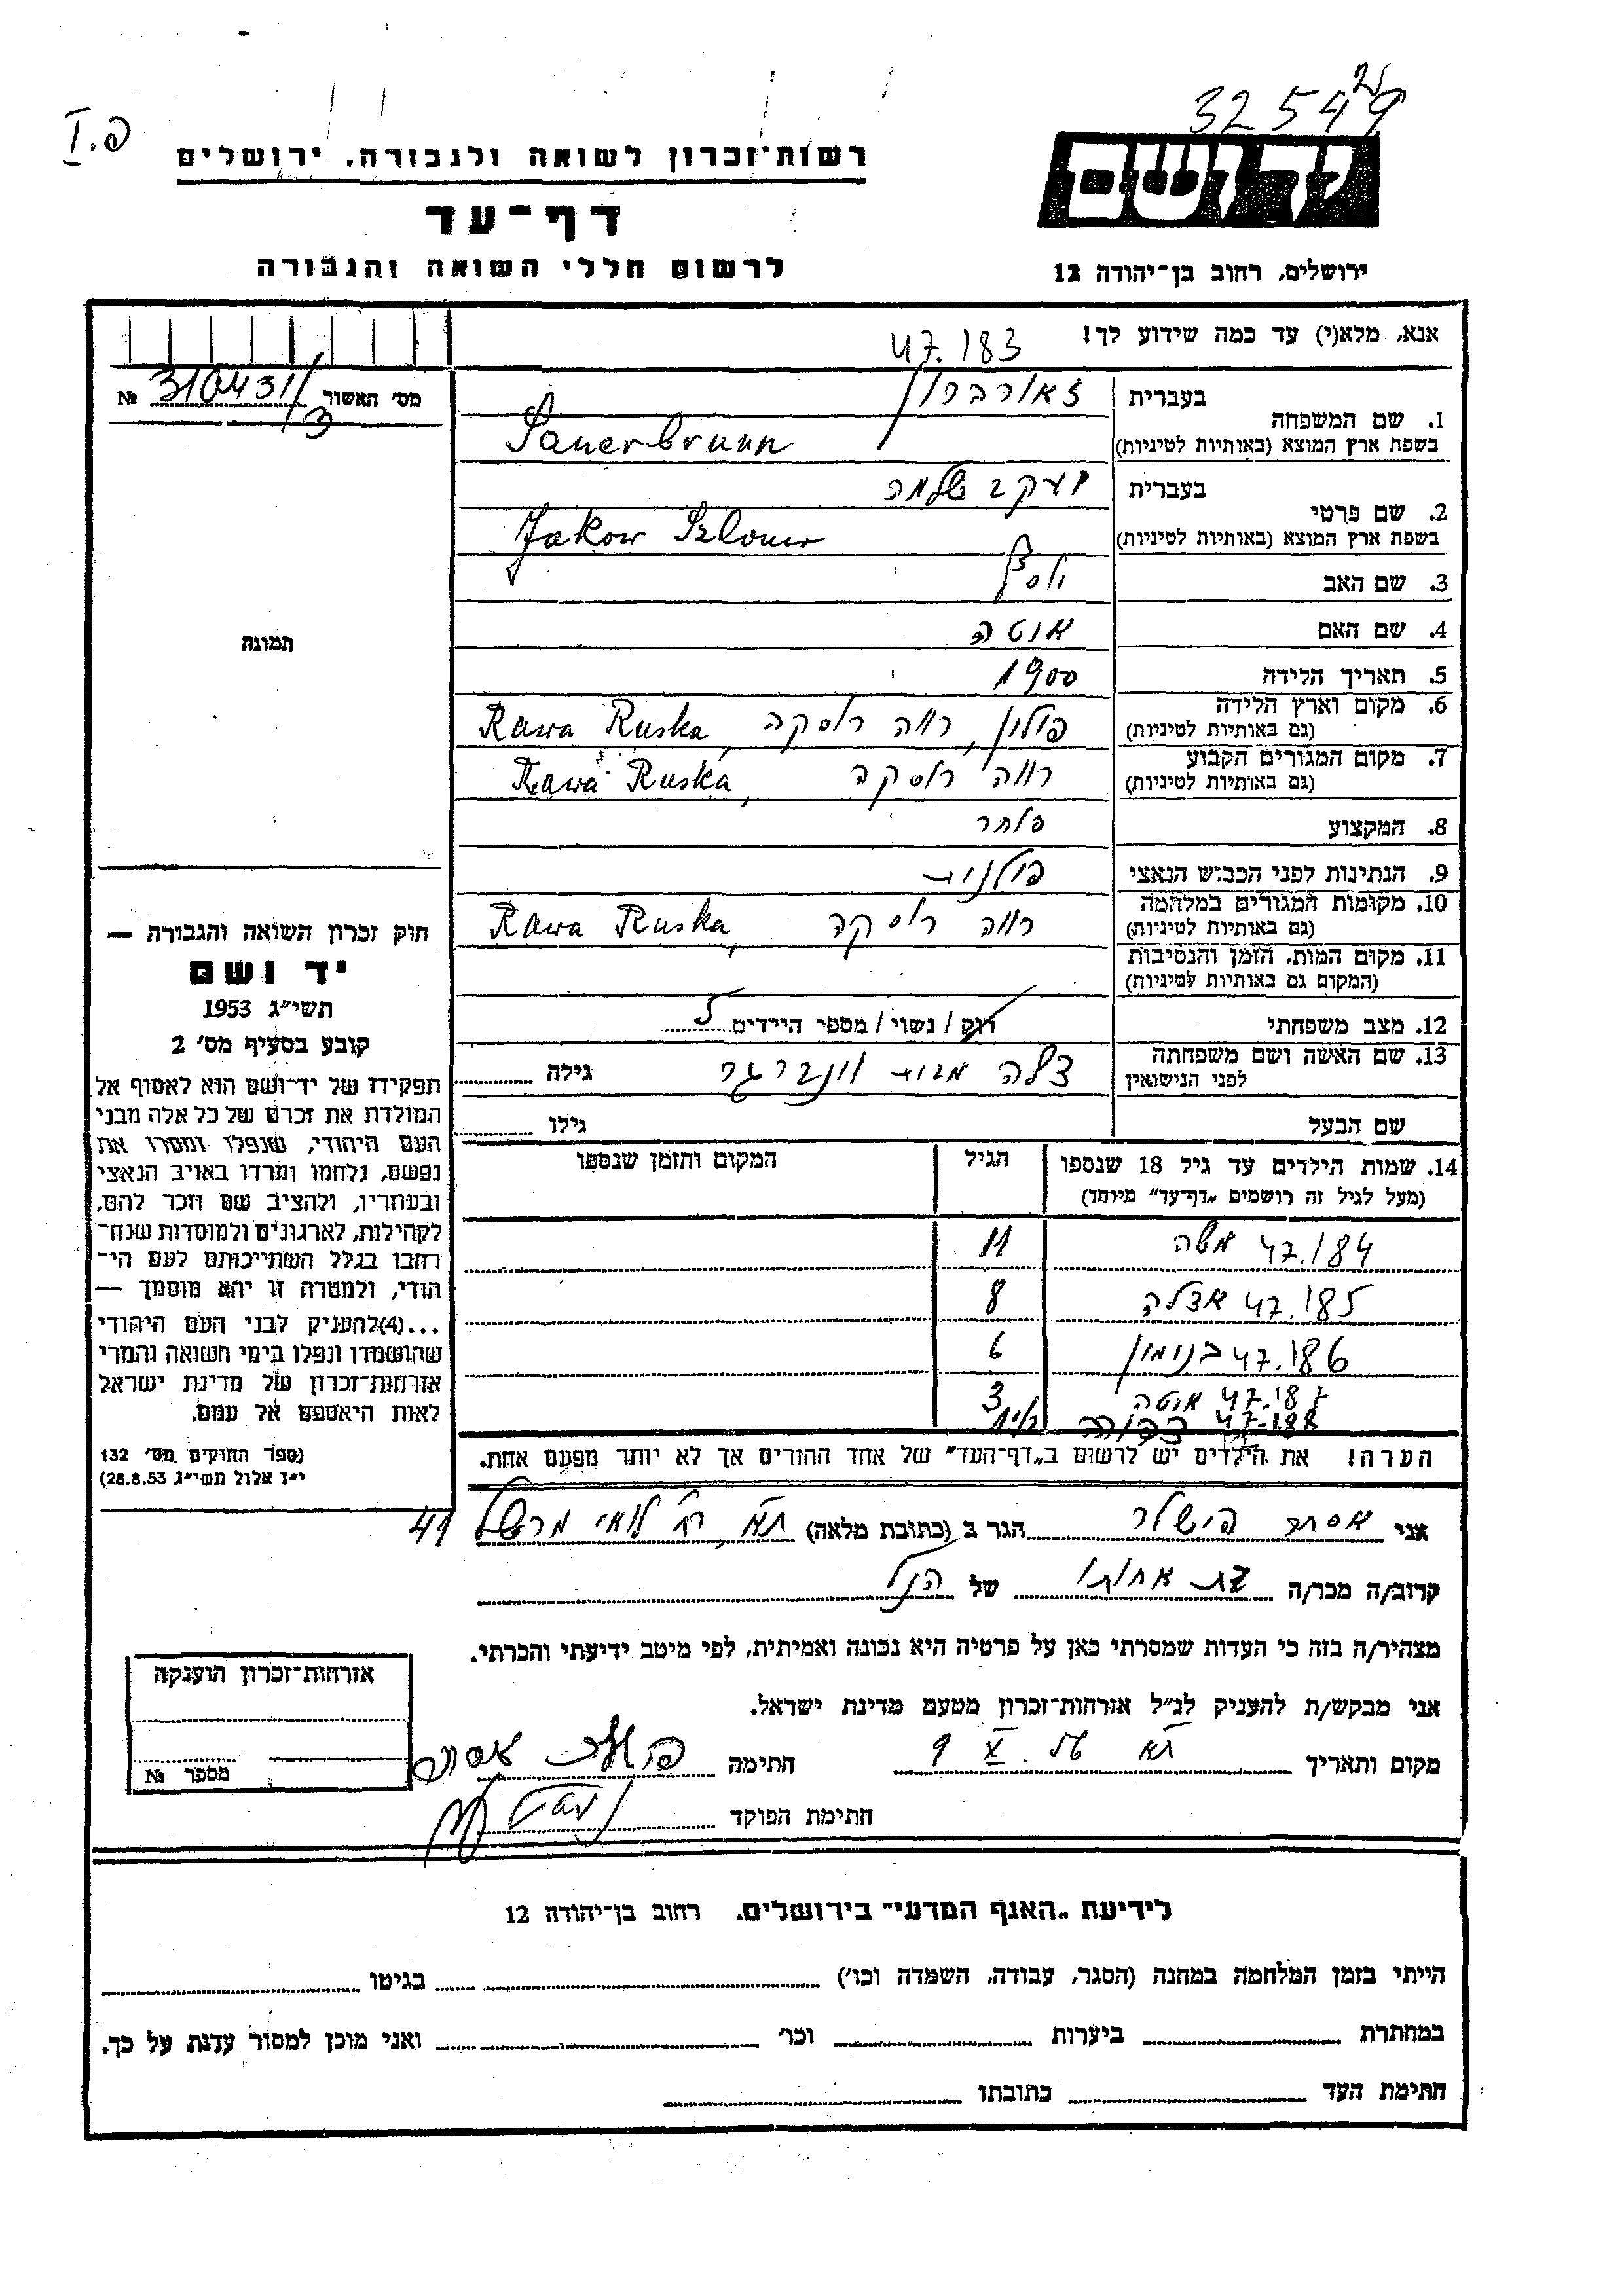 32549
פ.I
יד ושם
רשות־זכרון לשואה ולגבורה, ירושלים
דף־עד
לרשום חללי השואה והגבורה
ירושלים, רחוב בן־יהודה 12
אנא, מלא(י) עד כמה שידוע לך!
47.183
מס' האשור 310431/3 №
1. שם המשפחה
בעברית זאורברון
בשפת ארץ המוצא (באותיות לטיניות) Sauerbrunn
2. שם פרטי
בעברית יעקב שלמה
בשפת ארץ המוצא (באותיות לטיניות) Jakow Szlomo
3. שם האב
4. שם האם אנטה
5. תאריך הלידה 1900
6. מקום וארץ הלידה פולין, רווה רוסקה, Rawa Ruska
(גם באותיות לטיניות)
7. מקום המגורים הקבוע רווה רוסקה, Rawa Ruska
(גם באותיות לטיניות)
8. המקצוע
9. הנתינות לפני הכבוש הנאצי פולנית
10. מקומות המגורים במלחמה רווה רוסקה, Rawa Ruska
(גם באותיות לטיניות)
11. מקום המות, הזמן והנסיבות
(המקום גם באותיות לטיניות)
12. מצב משפחתי רוק / נשוי / מספר הילדים 5
13. שם האשה ושם משפחתה צלה מבית וינברגר גילה
לפני הנישואין
שם הבעל גילו
תמונה
חוק זכרון השואה והגבורה —
יד ושם
תשי״ג 1953
קובע בסעיף מס' 2
תפקידו של יד־ושם הוא לאסוף אל
המולדת את זכרם של כל אלה מבני
העם היהודי, שנפלו ומסרו את
נפשם, נלחמו ומרדו באויב הנאצי
ובעוזריו, ולהציב שם וזכר להם,
לקהילות, לארגונים ולמוסדות שנח־
רבו בגלל השתייכותם לעם הי־
הודי, ולמטרה זו יהא מוסמך —
...(4)להעניק לבני העם היהודי
שהושמדו ונפלו בימי השואה והמרי
אזרחות־זכרון של מדינת ישראל
לאות היאספם אל עמם.
(ספר החוקים מס' 132
י״ז אלול תשי״ג 28.8.53)
14. שמות הילדים עד גיל 18 שנספו הגיל המקום והזמן שנספו
(מעל לגיל זה רושמים „דף־עד״ מיוחד)
47.184 משה 11
47.185 אצלה 8
47.186 בנימין 6
47.187 אנטה 3
47.188
הערה! את הילדים יש לרשום ב„דף־העד״ של אחד ההורים אך לא יותר מפעם אחת.
אני אסתר פישלר הגר ב (כתובת מלאה) תא, רח' לואי מרשל 41
קרוב/ה מכר/ה בת אחותו של הנ״ל
מצהיר/ה בזה כי העדות שמסרתי כאן על פרטיה היא נכונה ואמיתית, לפי מיטב ידיעתי והכרתי.
אני מבקש/ת להעניק לנ״ל אזרחות־זכרון מטעם מדינת ישראל.
מקום ותאריך תא 9.X חתימה
חתימת הפוקד
אזרחות־זכרון הוענקה
מספר №
לידיעת „האגף המדעי״ בירושלים. רחוב בן־יהודה 12
הייתי בזמן המלחמה במחנה (הסגר, עבודה, השמדה וכו') בגיטו
במחתרת ביערות וכו' ואני מוכן למסור עדות על כך.
חתימת העד כתובתו